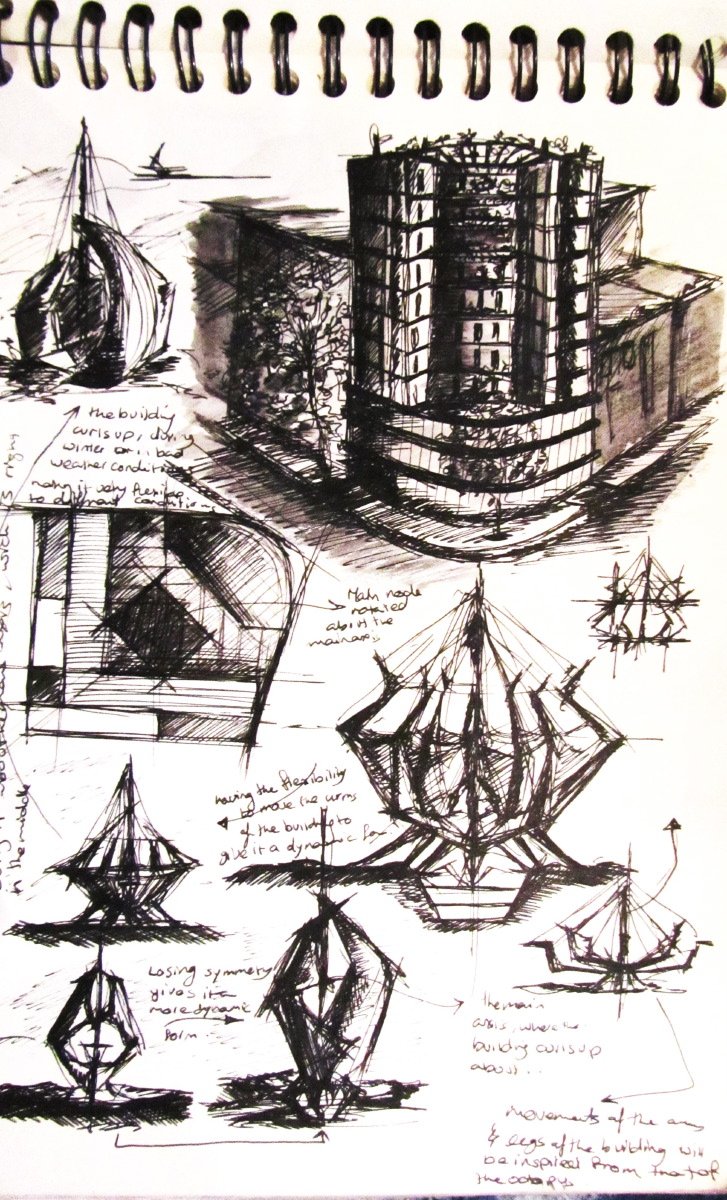 the building
curls up, during
winter or bad
weather conditions
making it very flexible
to different conditions
Main node
rotated
about the
main axis
having the flexibility
to move the arms
of the building to
give it a dynamic form
Losing symmetry
gives it a
more dynamic
form
the main
axis, where the
building curls up
about..
to the middle
Movements of the arms
& legs of the building will
be inspired from the
the octopus